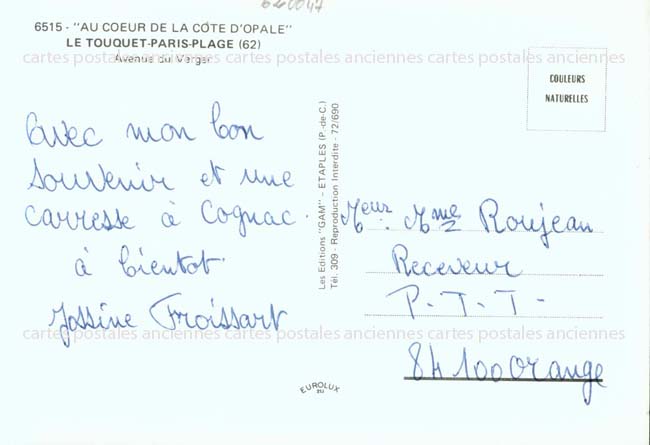 620047
6515 - "AU COEUR DE LA CÔTE D'OPALE"
LE TOUQUET-PARIS-PLAGE (62)
cartes postales anciennes cartes postales anciennes cartes postales anciennes
Avenue du Verger
COULEURS
NATURELLES
avec mon bon
souvenir et une
carresse à Cognac.
à bientot.
Jossine Froissart
Les Editions "GAM" - ETAPLES (P.-de-C.)
Tél. 309 - Reproduction Interdite - 72/690
Meur. Mme Roujean
Receveur
P. T. T.
cartes postales anciennes cartes postales anciennes cartes postales anciennes
84100 Orange
EUROLUX